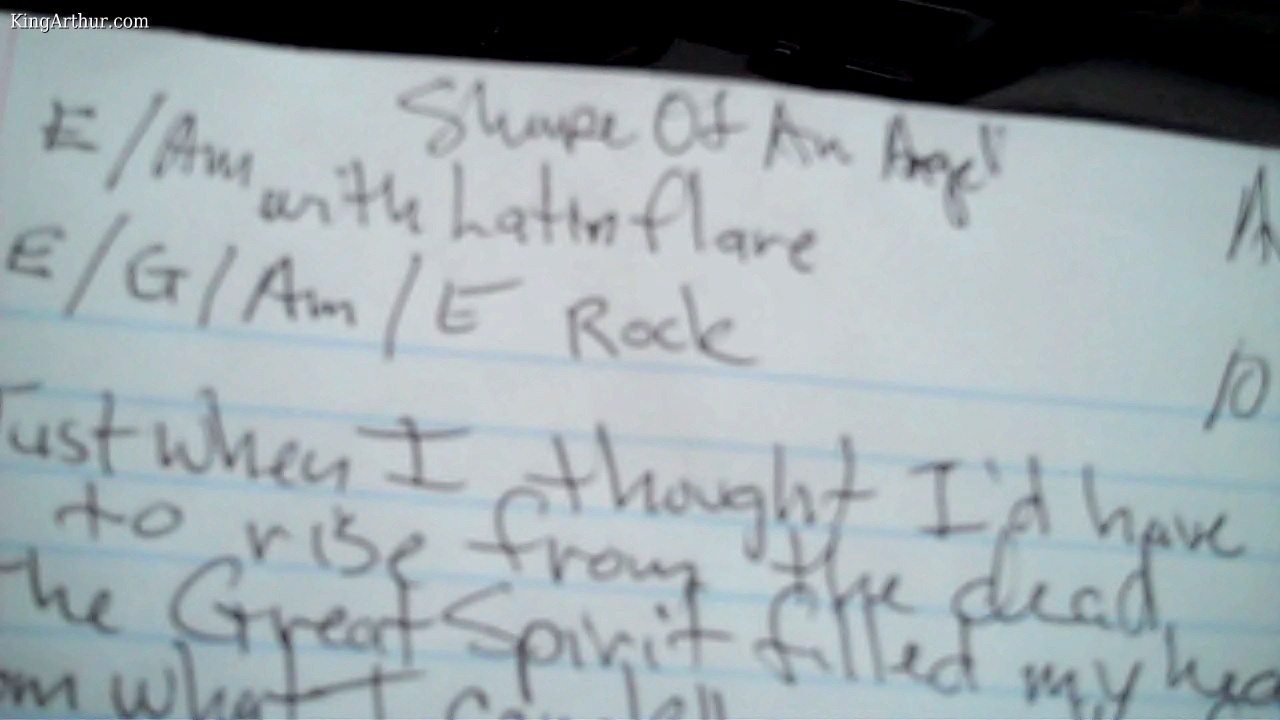 KingArthur.com
Shape Of An Angel"
E/Am with Latin flare
A
E/G/Am/E Rock
10
Just when I thought I'd have
to rise from the dead,
the Great Spirit filled my hea
om what I can tell